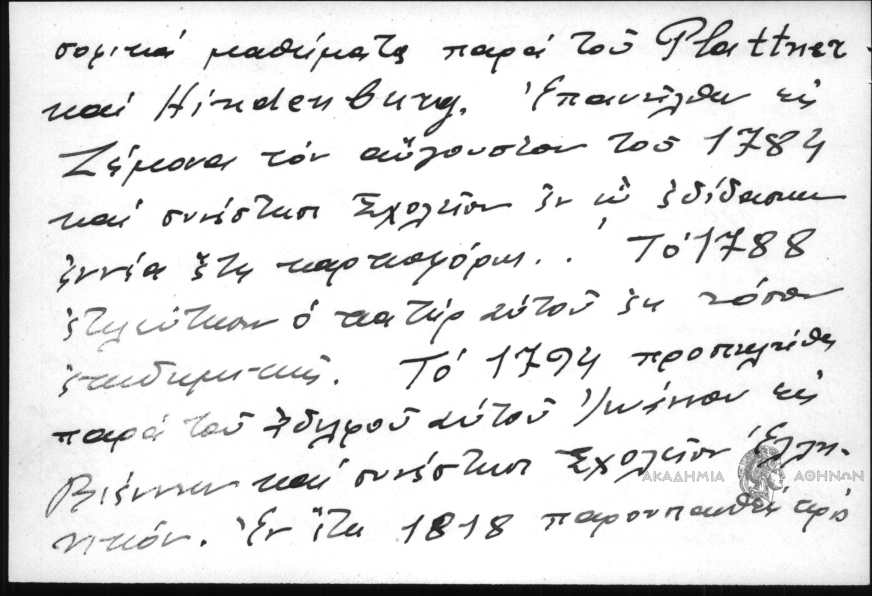 σοφικά μαθήματα παρά τοῦ Plattner
καί Hindenburg. Ἐπανῆλθεν εἰς
Ζέμονα τόν αὔγουστον τοῦ 1784
καί συνέστησε Σχολεῖον ἐν ᾧ ἐδίδασκεν
ἐννέα ἔτη καρποφόρως.. Τό 1788
ἐτελεύτησεν ὁ πατήρ αὐτοῦ ἐκ νόσου
ἐπιδημικῆς. Τό 1794 προσεκλήθη
παρά τοῦ ἀδελφοῦ αὐτοῦ εἰς
Βιέννην καί συνέστησε Σχολεῖον Ἑλλη-
νικόν. Ἐν ἔτει 1818 παρουσιασθείς πρός
ΑΚΑΔΗΜΙΑ ΑΘΗΝΩΝ